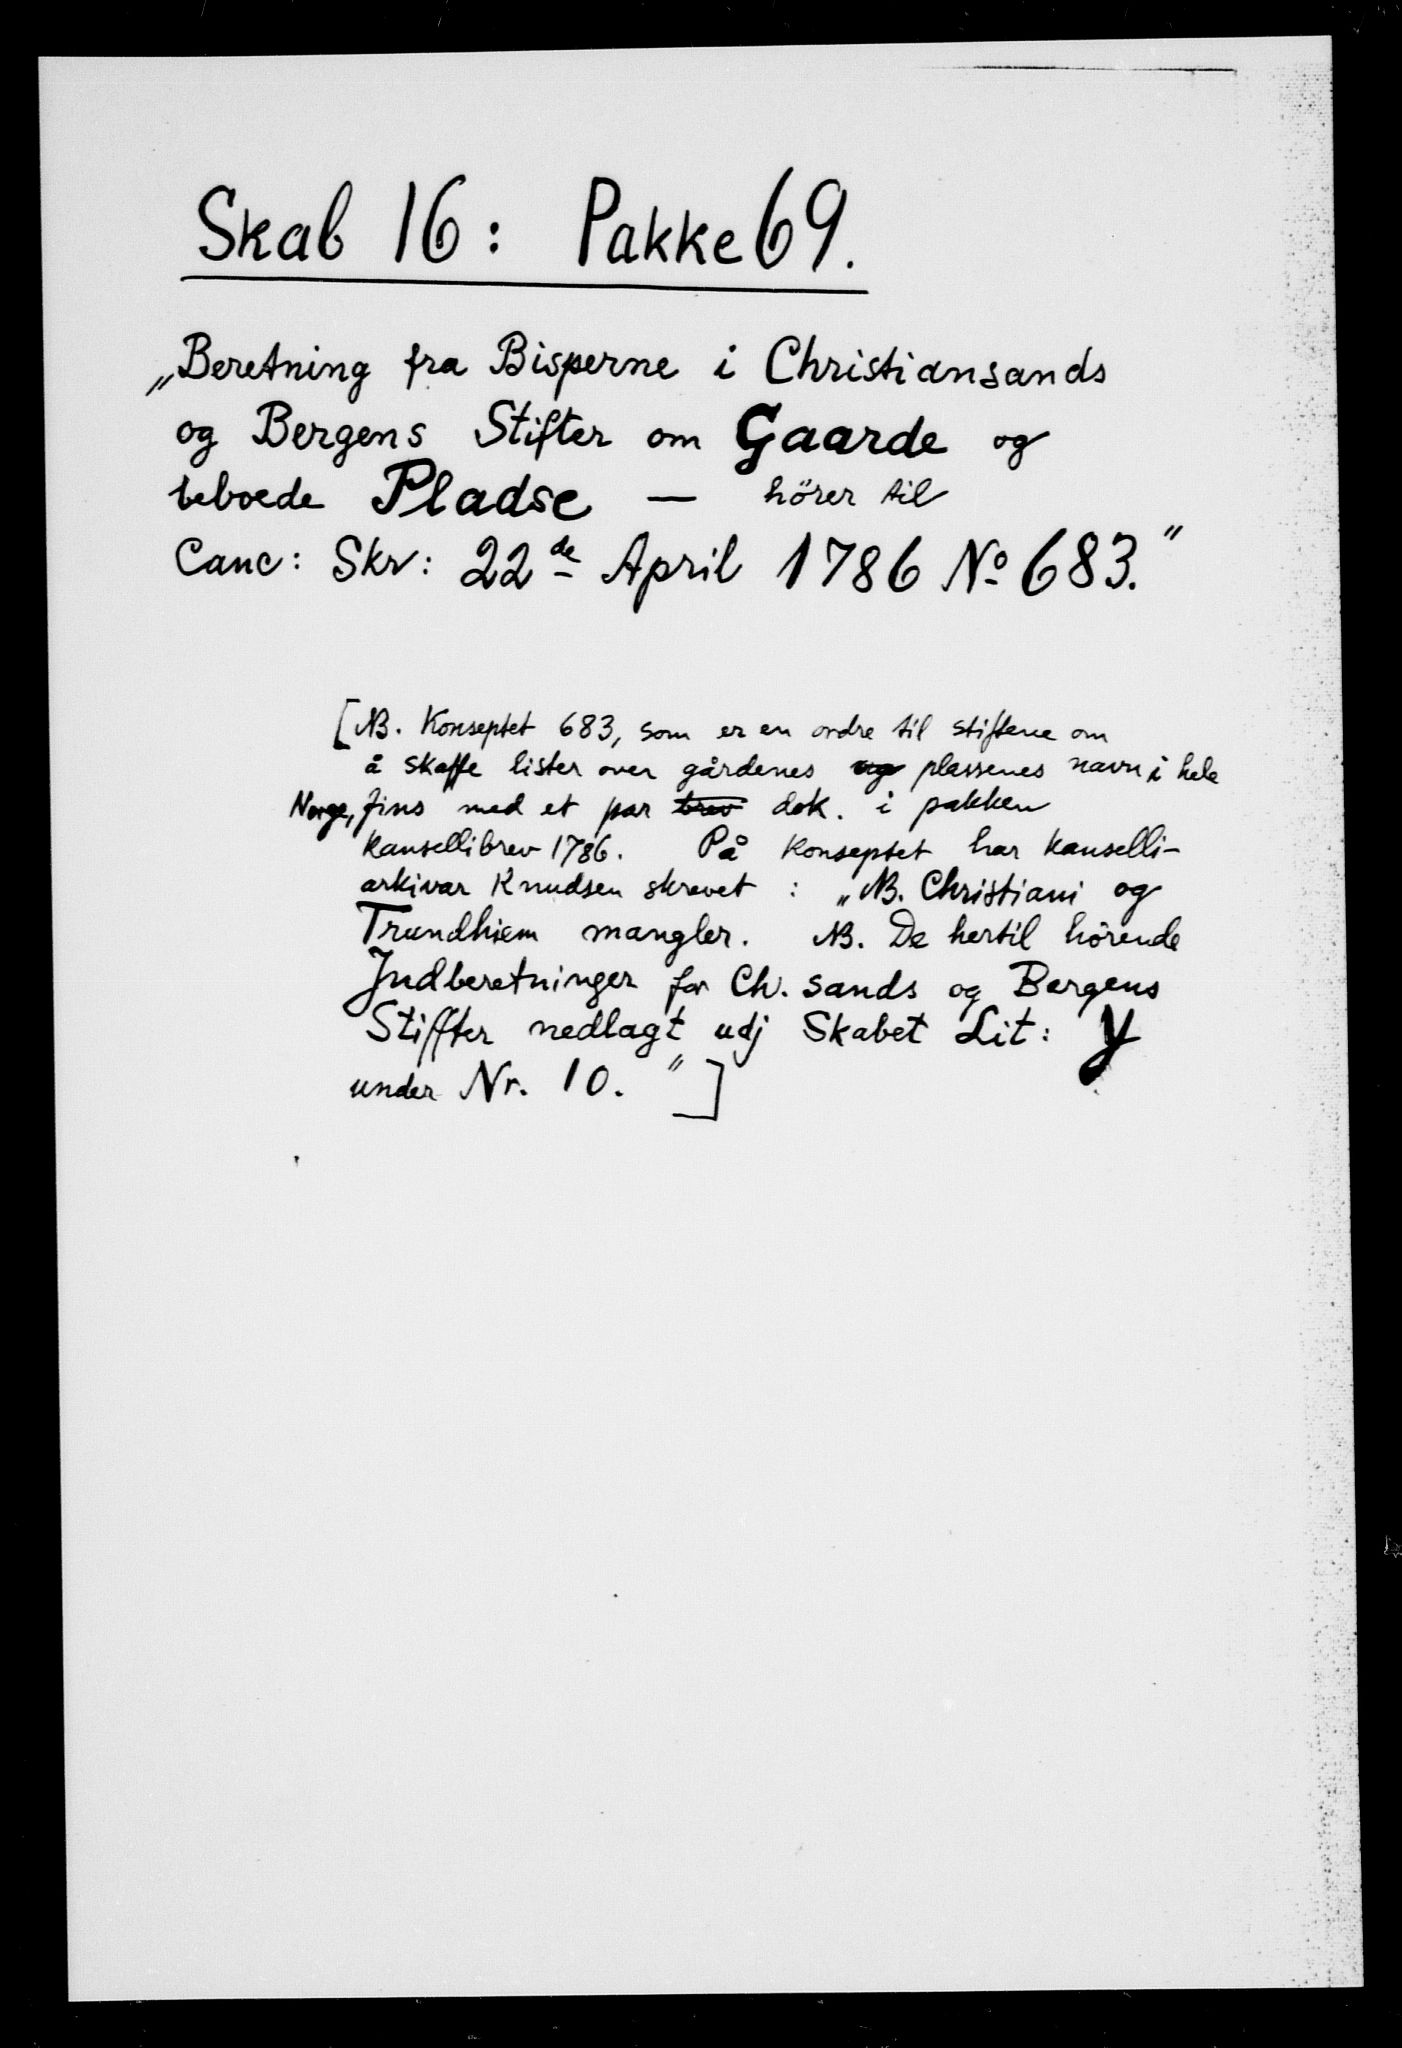 Skab 16: Pakke 69.
„Beretning fra Bisperne i Christiansands
og Bergens Stifter om Gaarde og
beboede Pladse — hörer til
Canc: Skr: 22de April 1786 No 683."
[NB. Konseptet 683, som er en ordre til stiftene om
å skaffe lister over gårdenes og plassenes navn i hele
Norge, fins med et par brev dok. i pakken
kansellibrev 1786. På konseptet har kanselli-
arkivar Knudsen skrevet: „NB. Christiani og
Trundhiem mangler. NB. De hertil hörende
Indberetninger for Ch.sands og Bergens
Stiffter nedlagt udj Skabet Lit: Y
under Nr. 10."]